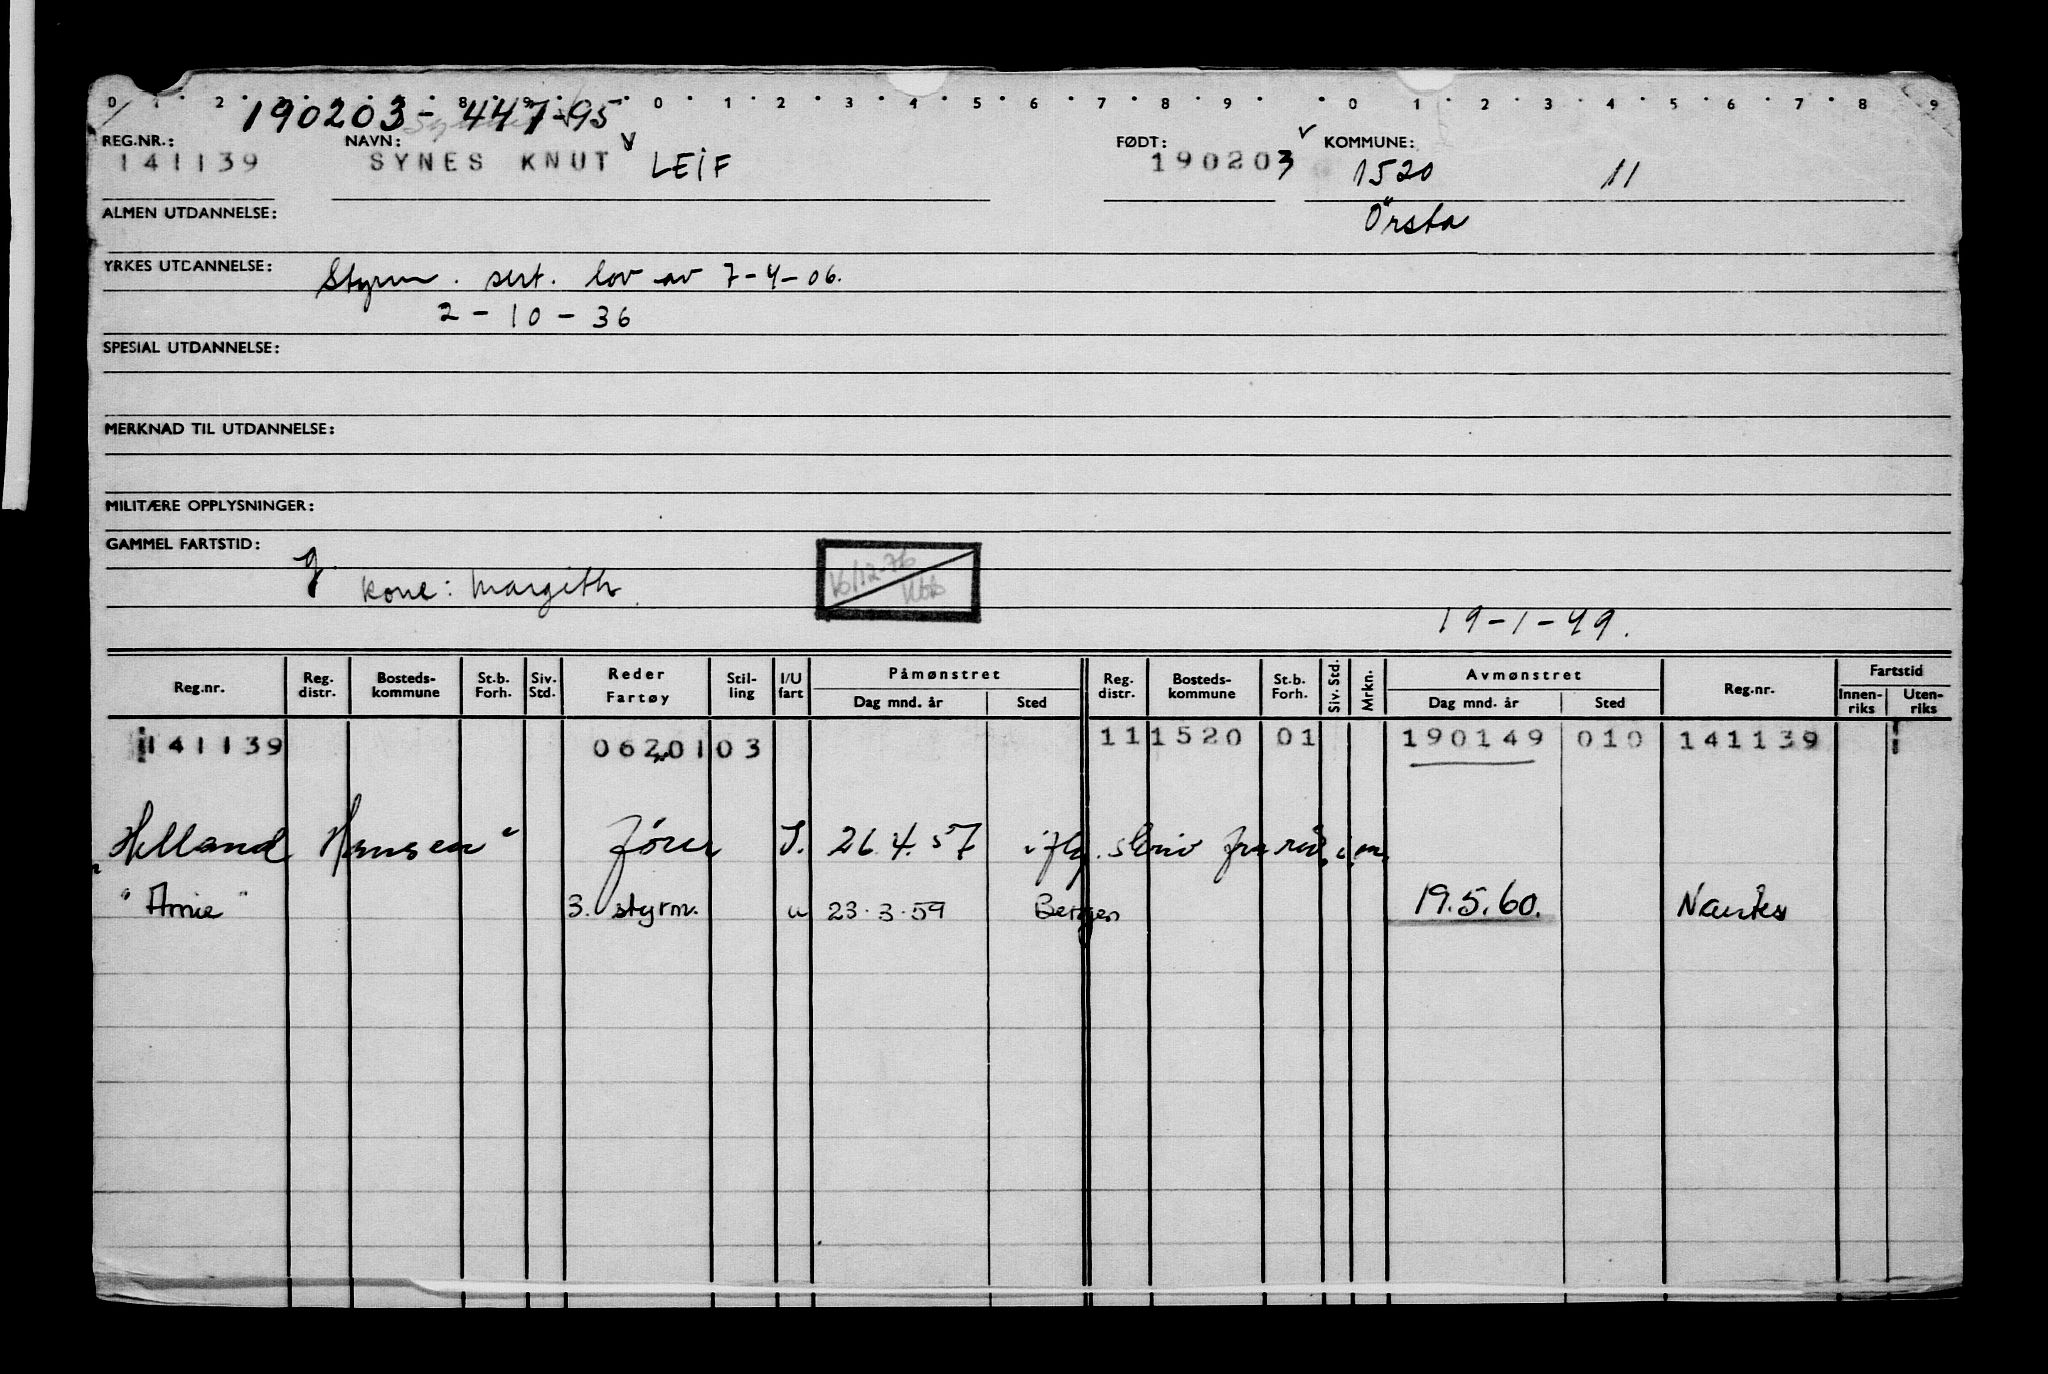 0 1 2 3 8 9 0 1 2 3 4 5 6 7 8 9 0 1 2 3 4 5 6 7 8 9
190203-447-95
REG.NR.: NAVN: FØDT: KOMMUNE:
141139 SYNES KNUT LEIF 190203 1520 11
ALMEN UTDANNELSE: Ørsta
YRKES UTDANNELSE: Styrm. sert. lov av 7-4-06.
2-10-36
SPESIAL UTDANNELSE:
MERKNAD TIL UTDANNELSE:
MILITÆRE OPPLYSNINGER:
GAMMEL FARTSTID:
g.
kone: Margith. 16/12-76
19-1-49.
Reg.nr. Reg. distr. Bosteds-kommune St.b. Forh. Siv. Std. Reder Fartøy Stil-ling I/U fart Påmønstret Dag mnd. år Sted Reg. distr. Bosteds-kommune St.b. Forh. Siv. Std. Mrkn. Avmønstret Dag mnd. år Sted Reg.nr. Fartstid Innen-riks Uten-riks
141139 0620103 111520 01 190149 010 141139
"Helland Hansen" fører I. 26.4.57 iflg. skriv fra
"Arnie" 3. styrm. u 23.3.59 Bergen 19.5.60. Nantes